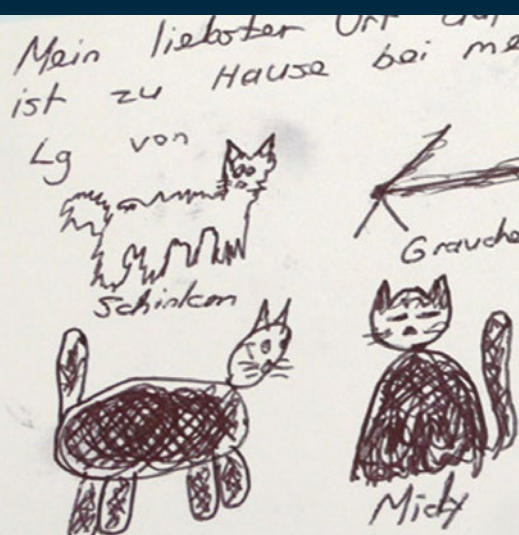 Mein liebster Ort auf
ist zu Hause bei me
Lg von
Grauche
Schinken
Midy